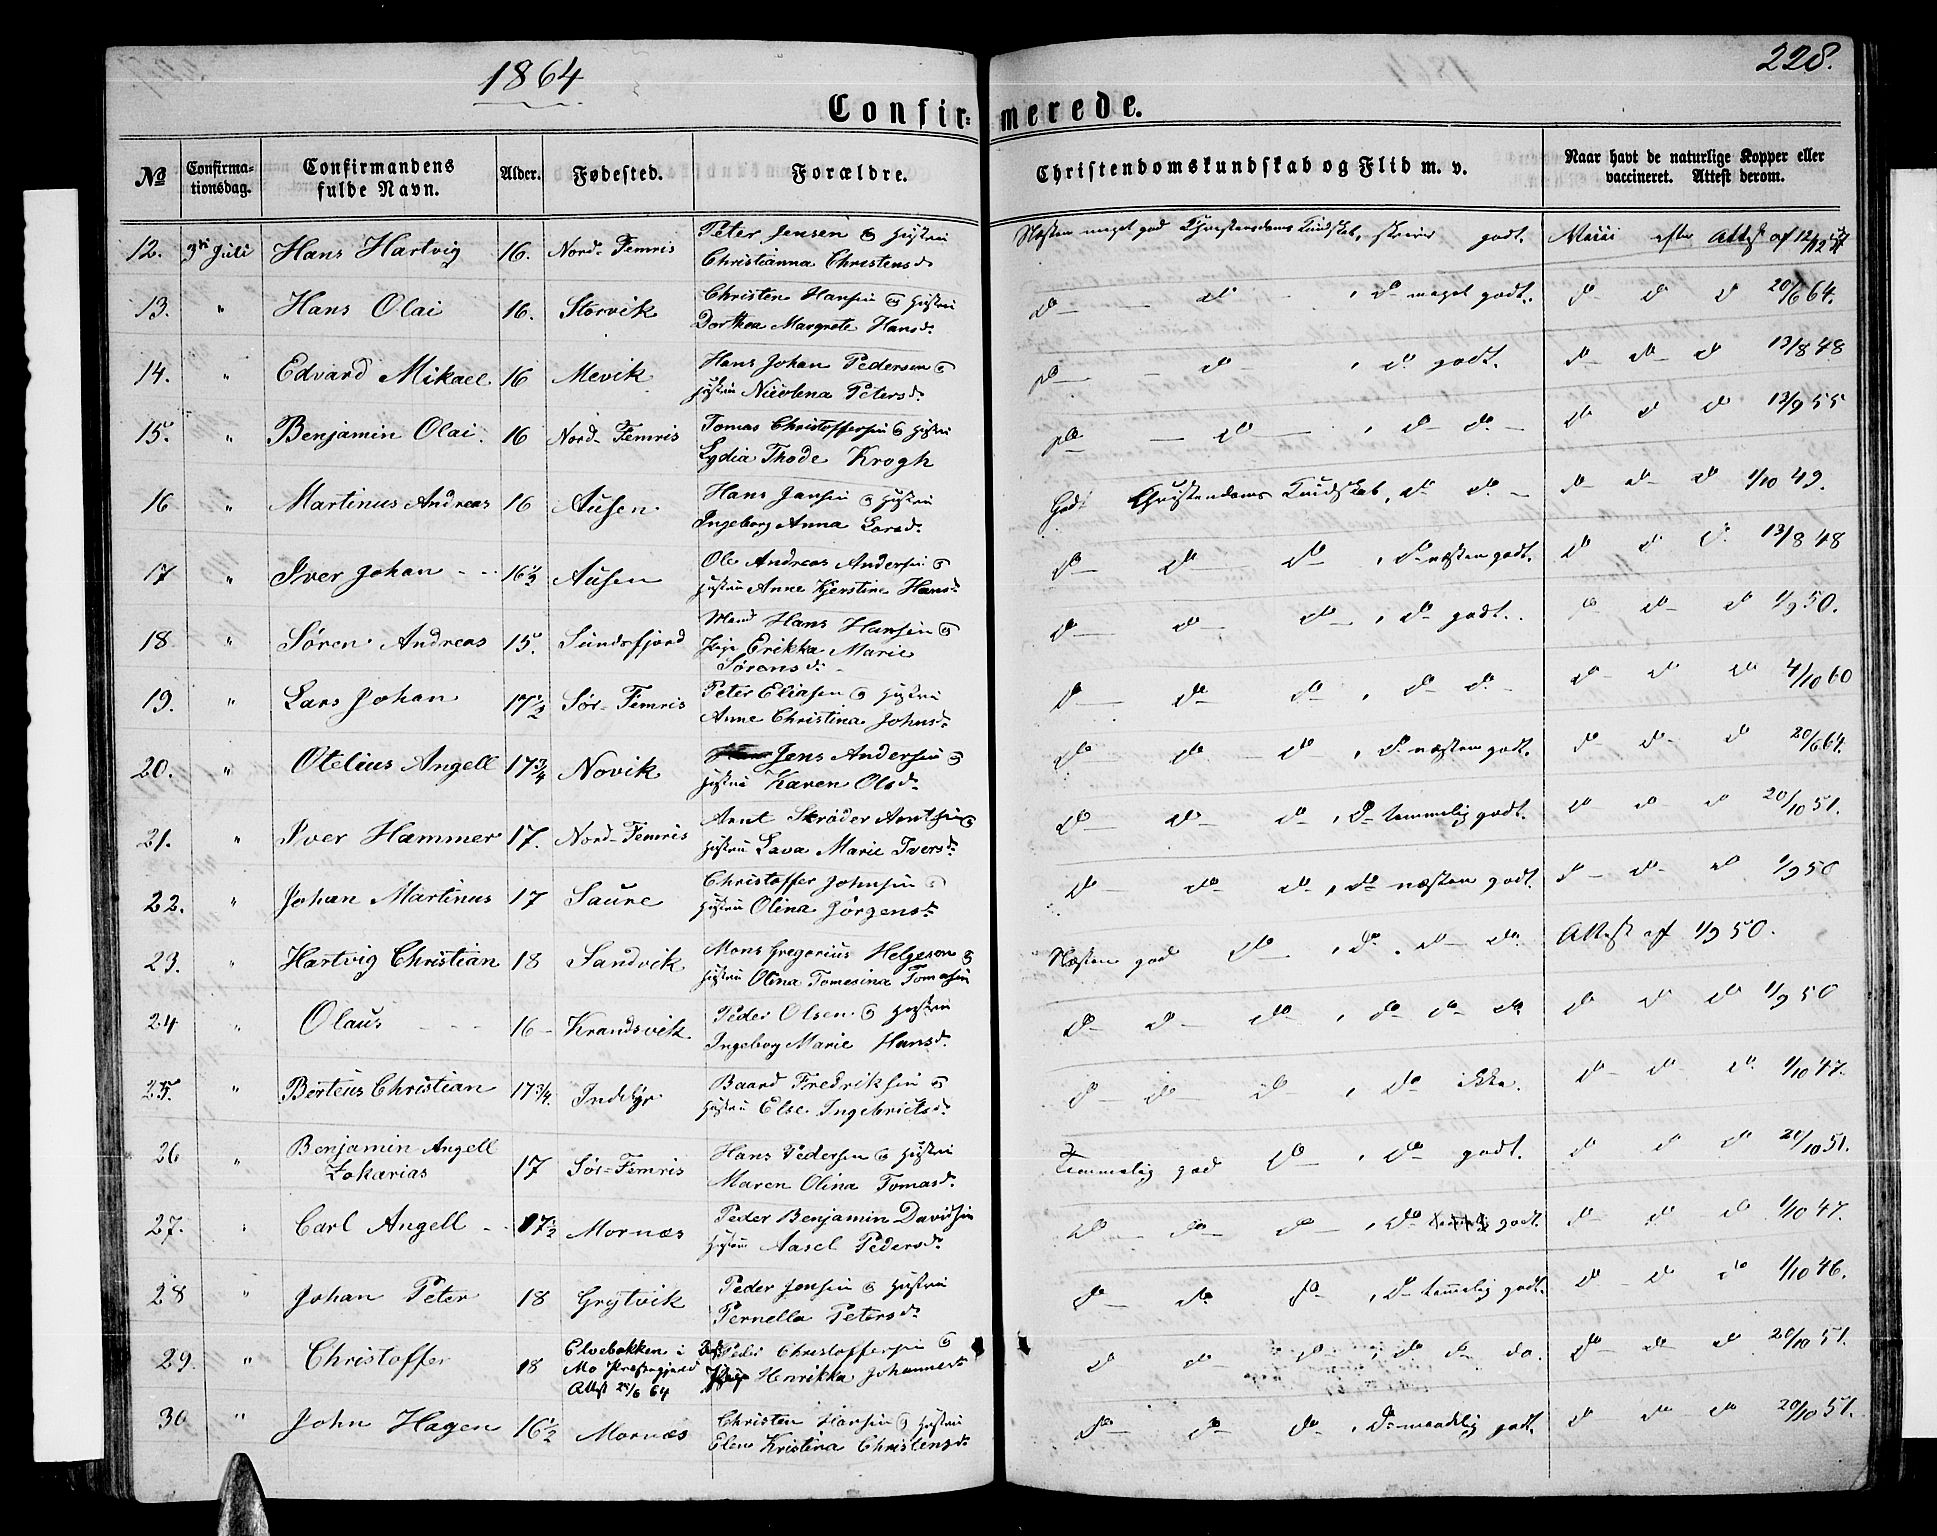 1864
228.
Confir- merede.
№
Confirma-
tionsdag.
Confirmandens
fulde Navn.
Alder.
Fødested.
Forældre.
Christendomskundskab og Flid m. v.
Naar havt de naturlige Kopper eller
vaccineret. Attest derom.
12. 3die Juli Hans Hartvig 16. Nord-Femris Peter Jensen og Hustru
Christianna Christensd. Næsten meget god Christendoms Kundskab, skriver godt. Attest af
13. " Hans Olai 16. Storvik Christen Hansen og Hustru
Dorthea Margrete Hansd. do - do - , do meget godt. do do do 20/6 64.
14. " Edvard Mikael 16 Mevik Hans Johan Pedersen og
Hustru Nicolena Petersd. do - do - , do godt. do do do 13/8 48
15. " Benjamin Olai. 16 Nord-Femris Tomas Christoffersen og Hustru
Lydia Thode Krogh do - do - , do do - do do do 13/9 55
16 " Martinus Andreas 16 Ausen Hans Jansen og Hustru
Ingeborg Anna Larsd. Godt Christendoms Kundskab, do do - do do do 1/10 49.
17 " Iver Johan - - 16½ Ausen Ole Andreas Andersen og
Hustru Anne Kjerstine Hansd. do - do do , do næsten godt. do do do 13/8 48
18. " Søren Andreas 15. Sundsfjord Mand Hans Hansen og
Pige Erikka Marie
Sørensd. do - do do , do godt. do do do 1/9 50.
19. " Lars Johan 17½ Sør-Femris Peter Eliasen og Hustru
Anne Christina Johnsd. do - do do , do do - do do do 4/10 60
20. " Otelius Angell 17¾ Novik Jens Andersen og
Hustru Karen Olsd. do do do , do næsten godt. do do do 20/6 64.
21. " Iver Hammer 17. Nord-Femris Arnt Skrøder Arntsen og
Hustru Lava Marie Iversd. do - do do , do temmelig godt. do do do 20/10 51.
22. " Johan Martinus 17 Saure Christoffer Johnsen og
Hustru Olina Jørgensd. do - do do , do næsten godt. do do do 1/9 50
23. " Hartvig Christian 18 Sandvik Mons Gregorius Helgesen og
Hustru Olina Tomesina Tomasen Næsten god do , do do do Attest af 1/9 50.
24 " Olaus - - - 16 - Krandsvik Peder Olsen og Hustru
Ingeborg Marie Hansd. do do do , do do do do do do 1/9 50
25. " Berteus Christian 17¾. Inddyr Baard Fredriksen og
Hustru Else Ingebrictsd. do do do , do ikke. do do do 1/10 47.
26 " Benjamin Angell
Zakarias 17 Sør-Femris Hans Pedersen og Hustru
Maren Olina Tomasd. Temmelig god do , do godt. do do do 20/10 51.
27. " Carl Angell - - 17½ Mornæs Peder Benjamin Davidsen
Hustru Aasel Pedersd. do do do , do godt. do do do 1/10 47.
28 " Johan Peter 18 Grytvik Peder Jensen og Hustru
Pernella Petersd. do do do , do temmelig godt. do do do 1/10 46.
29. " Christoffer 18 Elvebakken i
Mo Præstegjeld
Attest 20/6 64 Peder Christoffersen og
Henrikka Johannesd. do do do , do do do. do do do 20/10 51.
30 " John Hagen 16½ Mornæs Christen Hansen og Hustru
Elen Kristina Christensd. do do do , do maadelig godt. do do do 20/10 51.